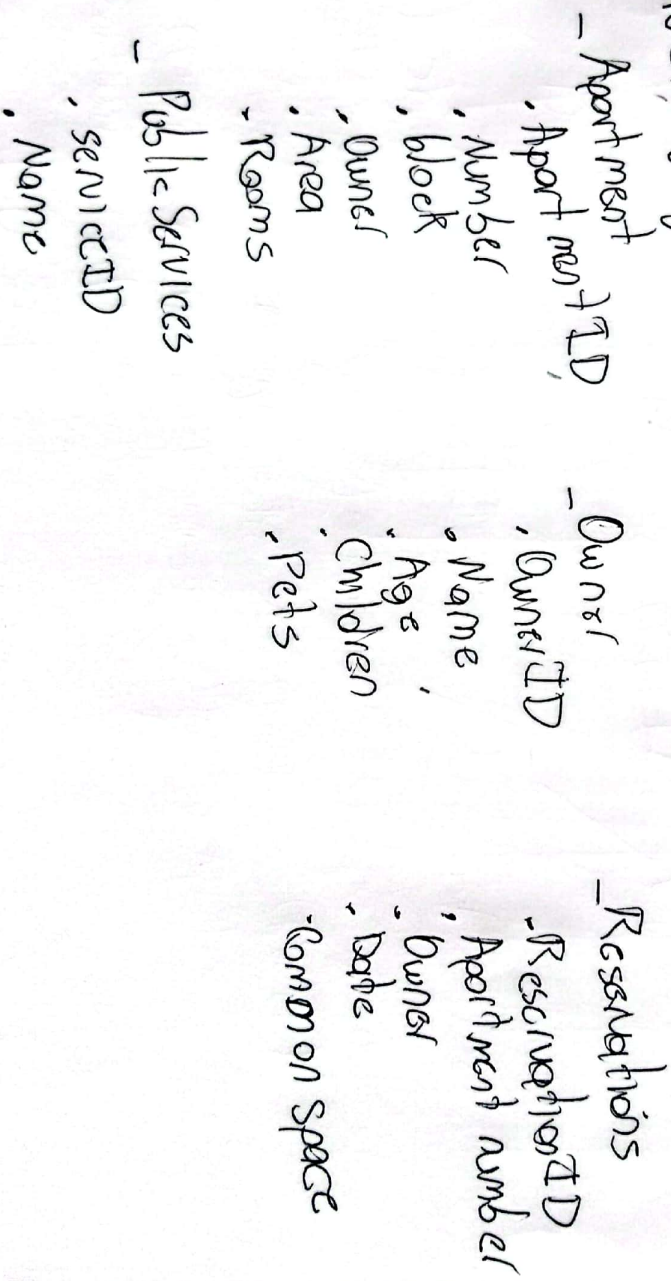 - Apartment
. Apartment ID
. Number
. block
. Owner
. Area
. Rooms
- Public Services
. serviceID
. Name
- Owner
. OwnerID
. Name
. Age
. Children
. Pets
- Reservations
. ReservationID
. Apartment number
. Owner
. Date
. Common Space